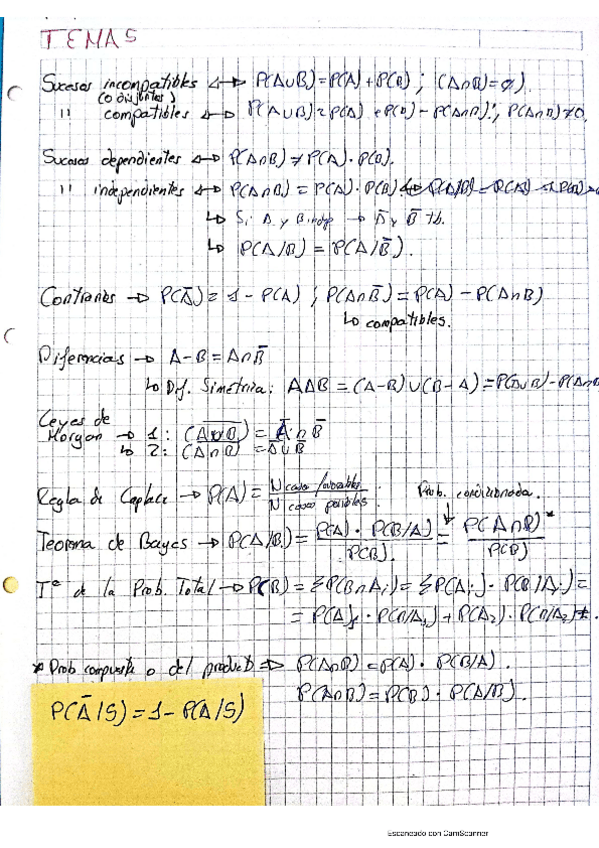 TEMAS
Sucesos incompatibles ↔ P(A∪B) = P(A) + P(B) ; (A∩B) = ∅ ).
(o disjuntos)
" compatibles ↔ P(A∪B) = P(A) + P(B) - P(A∩B) ; P(A∩B) ≠ 0.
Sucesos dependientes ↔ P(A∩B) ≠ P(A) · P(B).
" independientes ↔ P(A∩B) = P(A) · P(B)
↳ Si A y B indep → Ā y B̄ tb.
↳ P(A/B) = P(A/B̄).
Contrarios → P(Ā) = 1 - P(A) ; P(A∩B̄) = P(A) - P(A∩B)
↳ compatibles.
Diferencias → A-B = A∩B̄
↳ Dif. Simetria: AΔB = (A-B)∪(B-A) = P(A∪B) - P(A∩B
Leyes de
Morgan → 1: (A∪B)‾ = Ā∩B̄
↳ 2: (A∩B)‾ = Ā∪B̄
Regla de Laplace → P(A) = N casos favorables / N casos posibles.
Prob. condicionada.
Teorema de Bayes → P(A/B) = P(A) · P(B/A) / P(B). = P(A∩B)* / P(B)
Tª de la Prob. Total → P(B) = ΣP(B∩Ai) = ΣP(Ai) · P(B/Ai) =
= P(A1) · P(B/A1) + P(A2) · P(B/A2) + .
* Prob compuesta o del producto ⇒ P(A∩B) = P(A) · P(B/A).
P(A∩B) = P(B) · P(A/B).
P(Ā/S) = 1 - P(A/S)
Escaneado con CamScanner